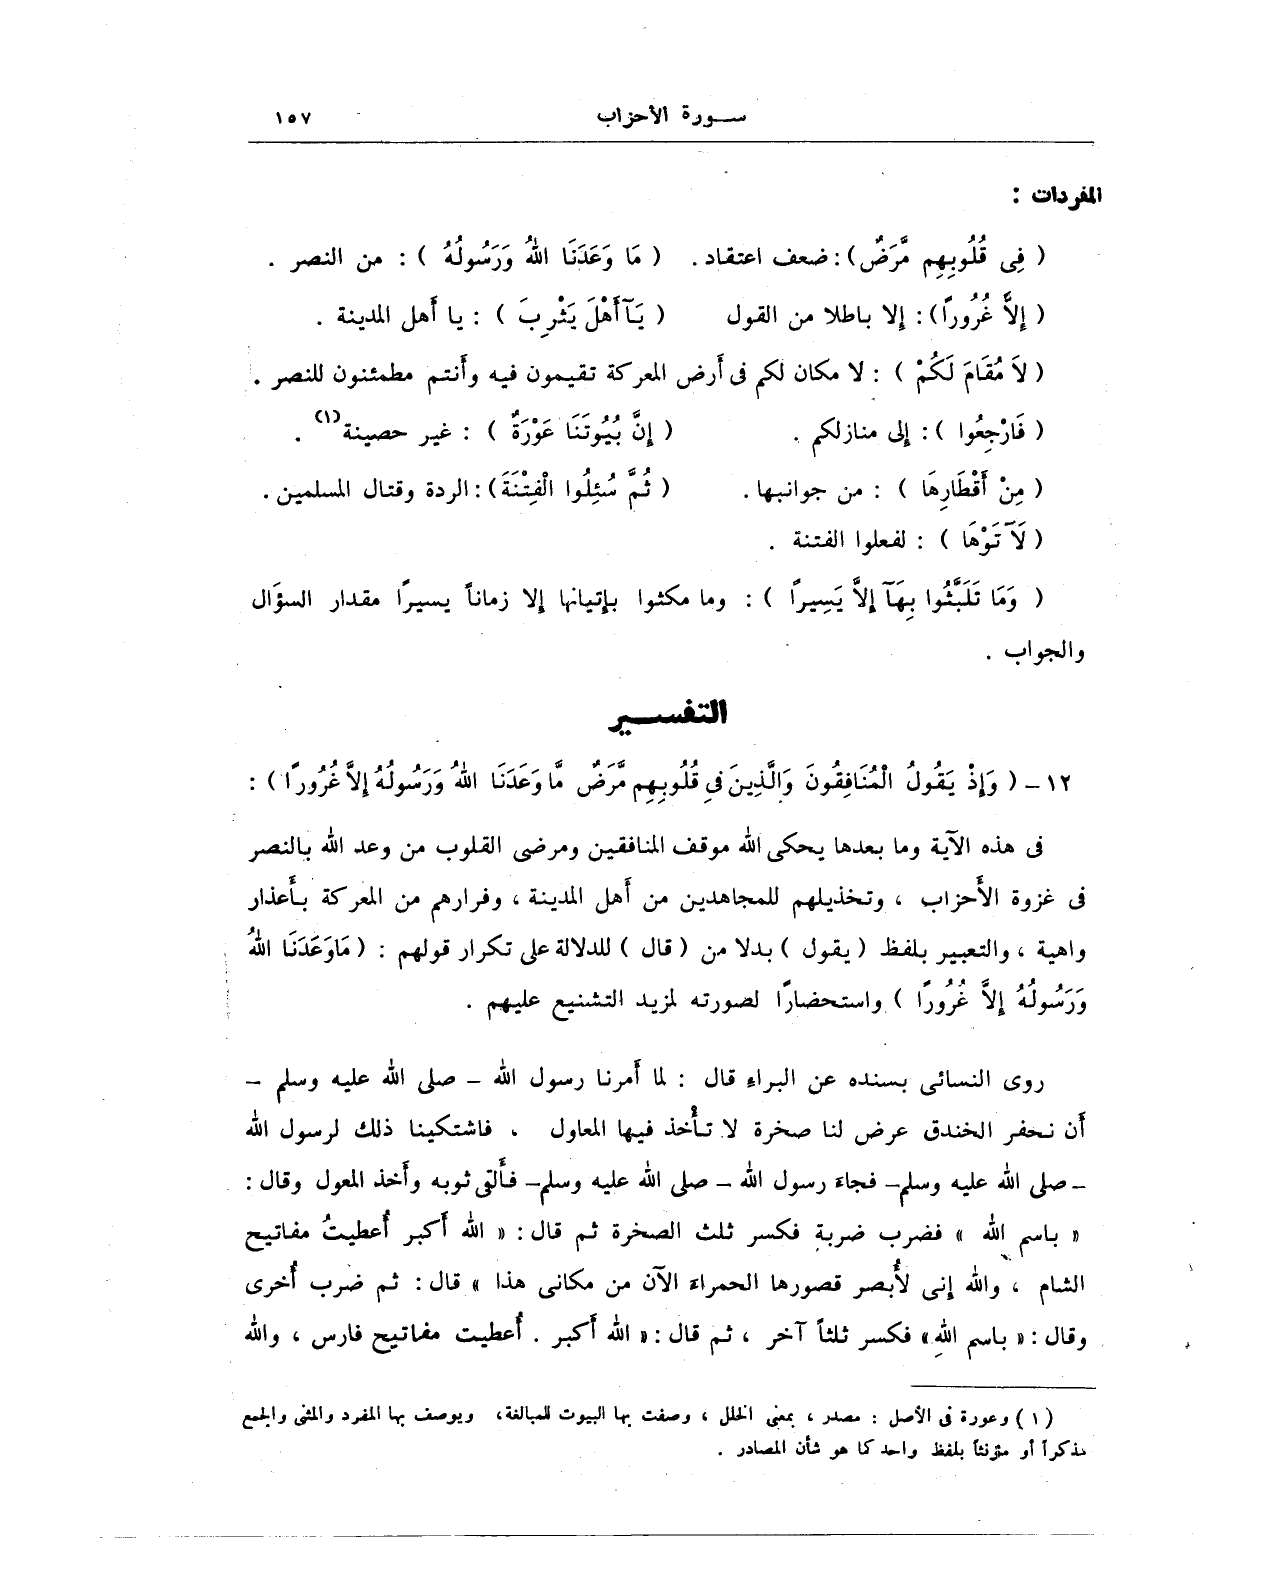 سـورة الأحزاب ١٥٧
المفردات :
( فِى قُلُوبِهِم مَّرَضٌ ) : ضعف اعتقاد . ( مَا وَعَدَنَا اللهُ وَرَسُولُهُ ) : من النصر .
( إِلاَّ غُرُورًا ) : إلا باطلا من القول ( يَآأَهْلَ يَثْرِبَ ) : يا أهل المدينة .
( لاَ مُقَامَ لَكُمْ ) : لا مكان لكم فى أرض المعركة تقيمون فيه وأنتم مطمئنون للنصر .
( فَارْجِعُوا ) : إلى منازلكم . ( إِنَّ بُيُوتَنَا عَوْرَةٌ ) : غير حصينة(١) .
( مِنْ أَقْطَارِهَا ) : من جوانبها . ( ثُمَّ سُئِلُوا الْفِتْنَةَ ) : الردة وقتال المسلمين .
( لَآتَوْهَا ) : لفعلوا الفتنة .
( وَمَا تَلَبَّثُوا بِهَآ إِلاَّ يَسِيرًا ) : وما مكثوا بإتيانها إلا زماناً يسيرًا مقدار السؤال
والجواب .
التفســير
١٢ - ( وَإِذْ يَقُولُ الْمُنَافِقُونَ وَالَّذِينَ فِى قُلُوبِهِم مَّرَضٌ مَّا وَعَدَنَا اللهُ وَرَسُولُهُ إِلاَّ غُرُورًا ) :
فى هذه الآية وما بعدها يحكى الله موقف المنافقين ومرضى القلوب من وعد الله بالنصر
فى غزوة الأحزاب ، وتخذيلهم للمجاهدين من أهل المدينة ، وفرارهم من المعركة بأعذار
واهية ، والتعبير بلفظ ( يقول ) بدلا من ( قال ) للدلالة على تكرار قولهم : ( مَاوَعَدَنَا اللهُ
وَرَسُولُهُ إِلاَّ غُرُورًا ) واستحضارًا لصورته لمزيد التشنيع عليهم .
روى النسائى بسنده عن البراء قال : لما أمرنا رسول الله - صلى الله عليه وسلم -
أن نحفر الخندق عرض لنا صخرة لا تأخذ فيها المعاول . فاشتكينا ذلك لرسول الله
- صلى الله عليه وسلم - فجاء رسول الله - صلى الله عليه وسلم - فألقى ثوبه وأخذ المعول وقال :
« باسم الله » فضرب ضربة فكسر ثلث الصخرة ثم قال : « الله أكبر أُعطيتُ مفاتيح
الشام ، والله إنى لأُبصر قصورها الحمراء الآن من مكانى هذا » قال : ثم ضرب أُخرى
وقال : « باسم اللهِ » فكسر ثلثاً آخر ، ثم قال : « الله أكبر . أُعطيت مفاتيح فارس ، والله
( ١ ) وعورة فى الأصل : مصدر ، بمعنى الخلل ، وصفت بها البيوت للمبالغة ، ويوصف بها المفرد والمثنى والجمع
مذكراً أو مؤنثاً بلفظ واحد كما هو شأن المصادر .